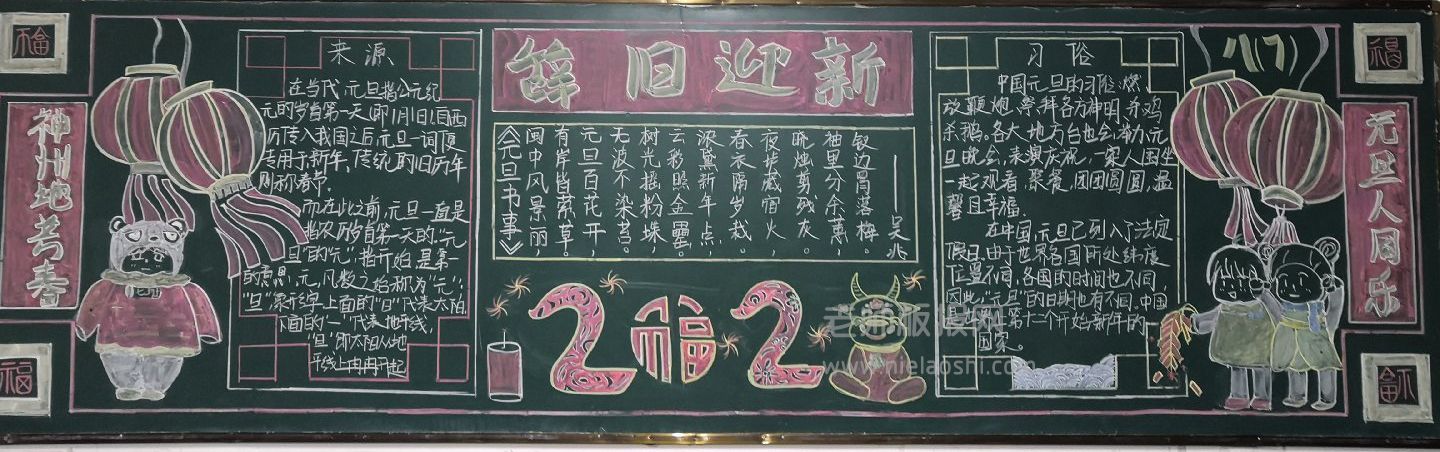 福
神州地着春
福
来源
在当代,元旦指公元纪
元的岁首第一天(即1月1日)自西
历传入我国之后,元旦一词便
专用于新年,传统的旧历年
则称春节.
而在此之前,元旦一直是
指农历岁首第一天的."元
旦"的"元",指开始,是第一
的意思,元,凡数之始称为"元";
"旦",象形字,上面的"日"代表太阳,
下面的"一"代表地平线,
"旦"即太阳从地
平线上冉冉升起
辞旧迎新
《元旦书事》
——吴兆
钗边冒落梅。
袖里分余蕙,
晓烛剪残灰。
夜垆藏宿火,
春衣隔岁裁。
浓黛新年点,
云移照金罍。
树光摇粉堞,
无波不染苔。
有岸皆蓊草,
元旦百花开,
闽中风景丽,
2福2
老师板报网
www.nielaoshi.com
习俗
中国元旦的习俗:燃
放鞭炮,祭拜各方神明,杀鸡
杀鹅。各大地方台也会举办元
旦晚会,表演庆祝,一家人围坐
一起观看,聚餐,团团圆圆,温
馨且幸福.
在中国,元旦已列入了法定
假日.由于世界各国所处纬度
位置不同,各国的时间也不同,
因此,"元旦"的日期也有不同.中国
第十二个开始新年的
国家.
福
元旦人同乐
福